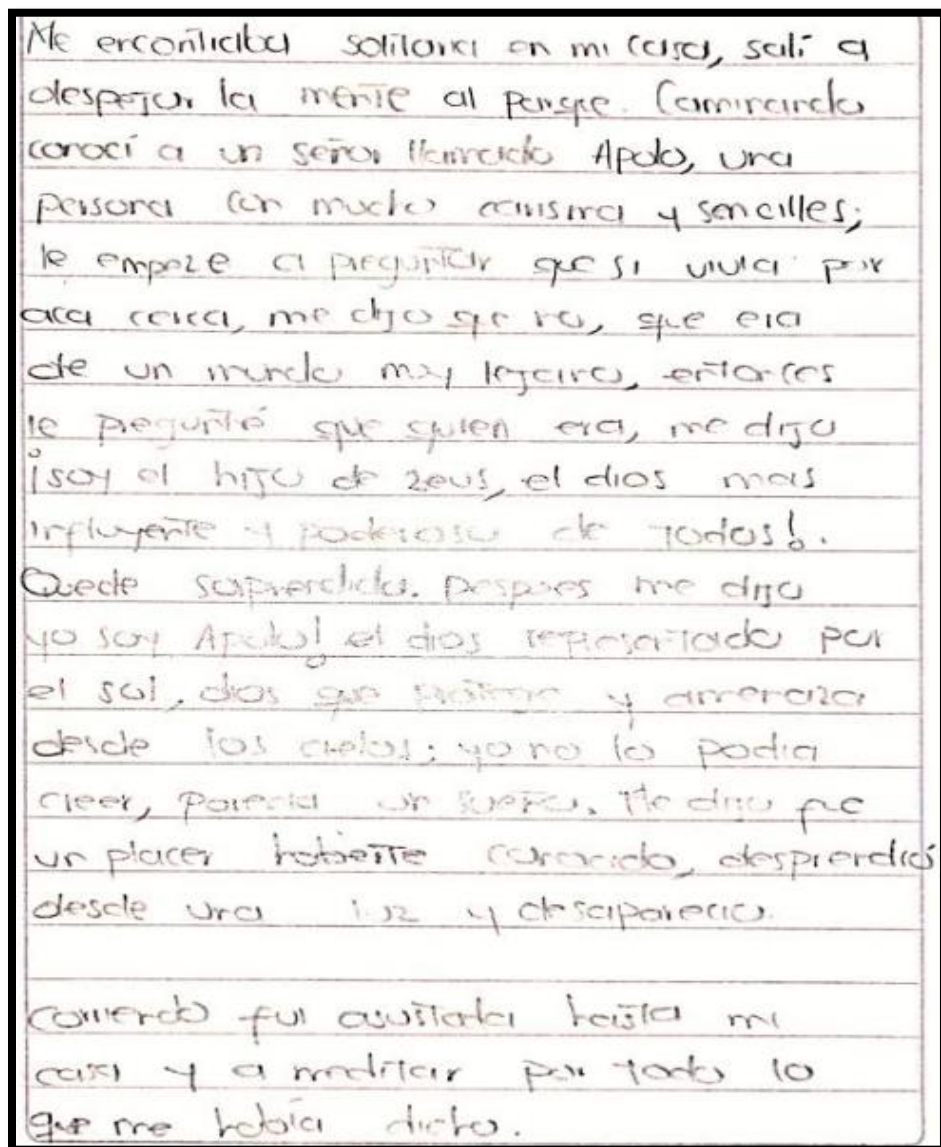 Me encontraba solitaria en mi casa, salí a
despejar la mente al parque. Caminando
conocí a un señor llamado Apolo, una
persona con mucho carisma y sencilles;
le empeze a preguntar que si vivia por
aca cerca, me dijo que no, que era
de un mundo muy lejano, entonces
le pregunté que quien era, me dijo
¡soy el hijo de zeus, el dios mas
influyente y poderoso de todos!.
Quede sorprendida. Despues me dijo
yo soy Apolo! el dios representado por
el sol, dios que y amenaza
desde los cielos; yo no lo podia
creer, parecia un sueño. Me dijo fue
un placer haberte conocido, desprendió
desde una luz y desaparecio.
corriendo fui asustada hasta mi
casa y a meditar por todo lo
que me habia dicho.